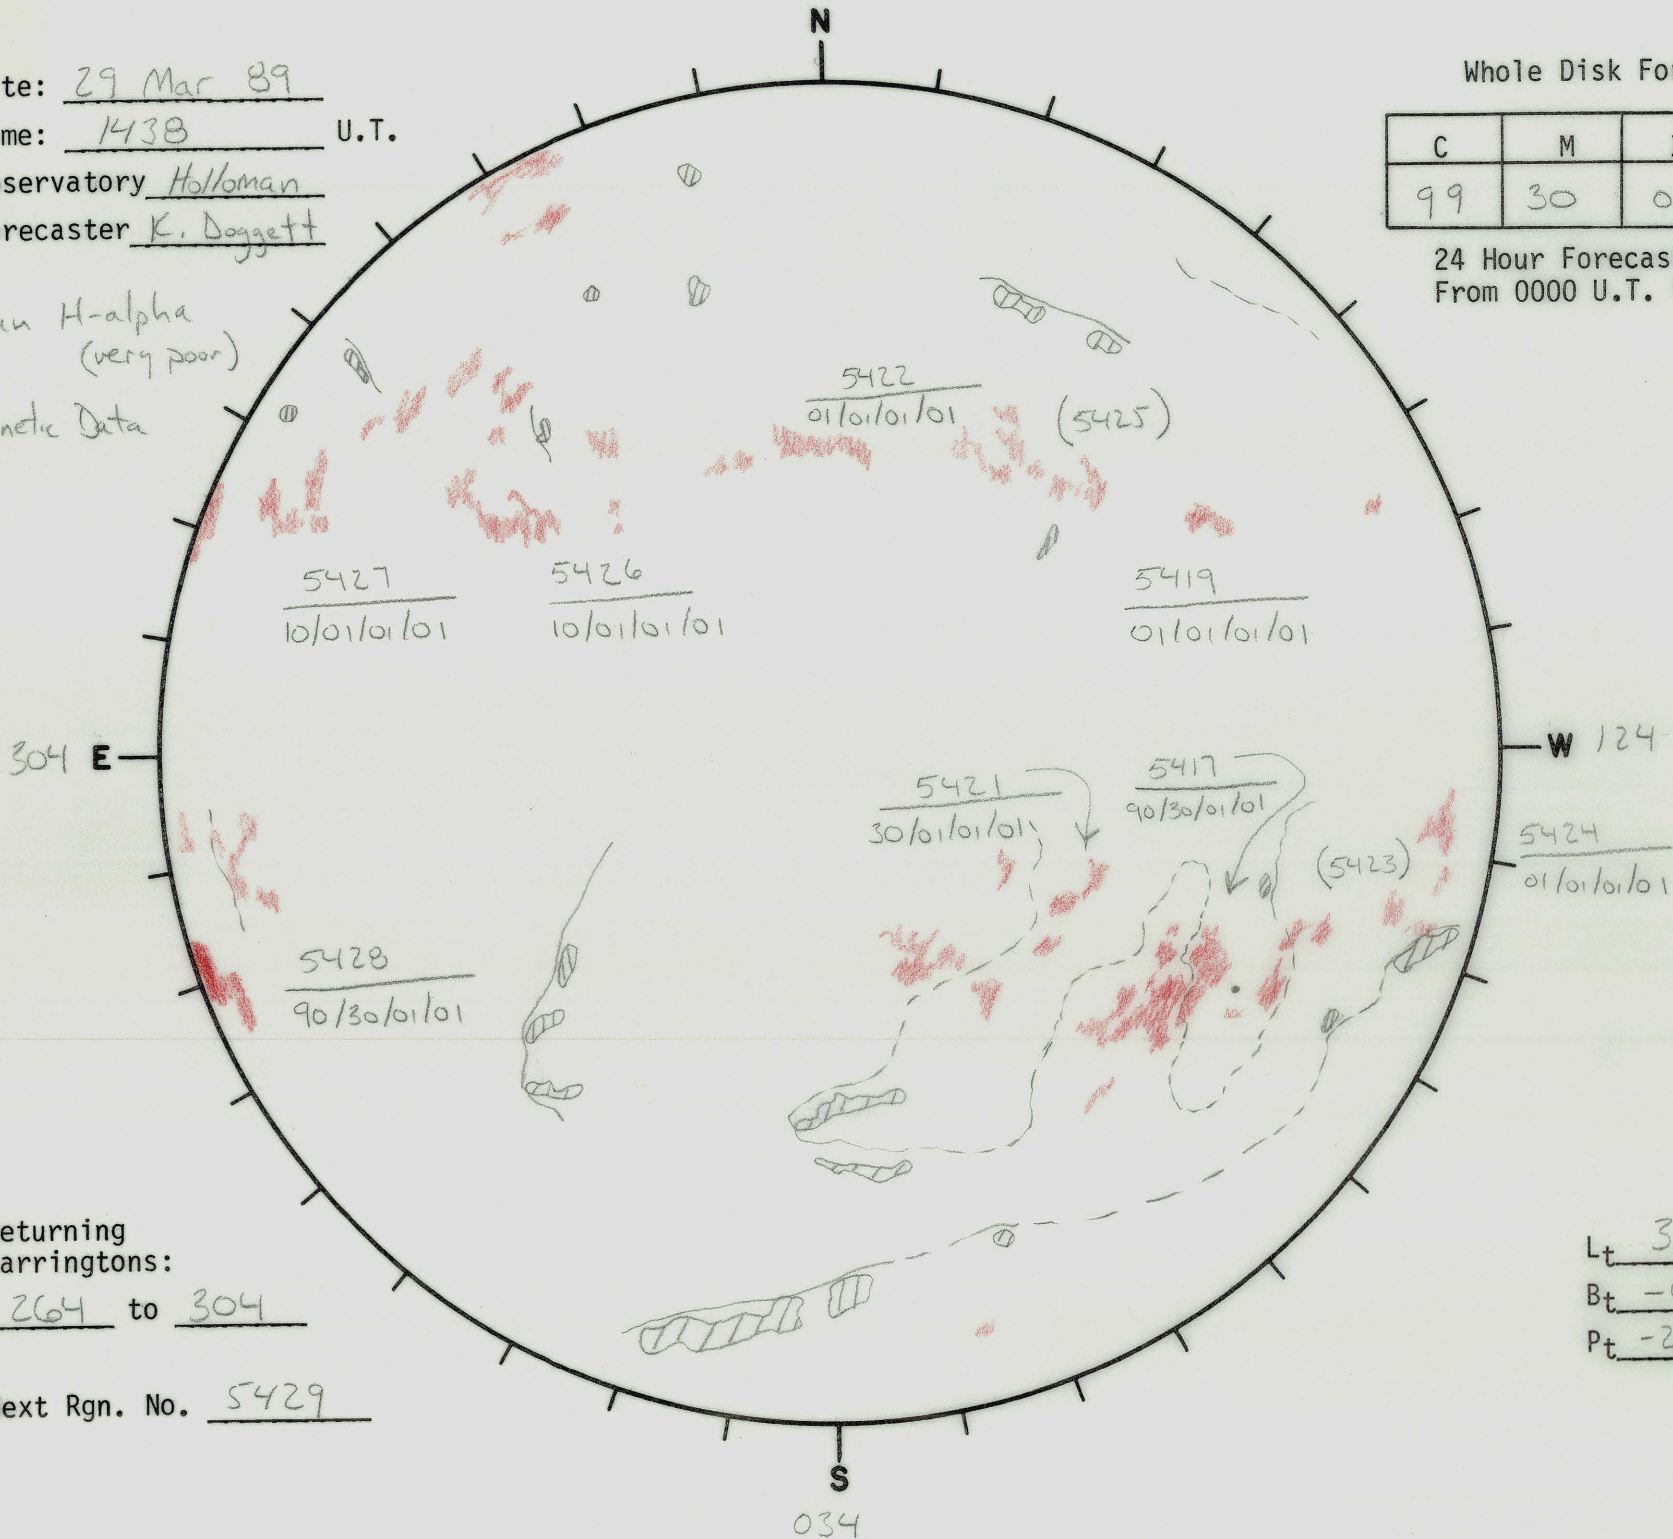 N
te: 29 Mar 89
me: 1438 U.T.
servatory Holloman
recaster K. Doggett
H-alpha
(very poor)
netic Data
Whole Disk Fo
C M
99 30 0
24 Hour Forecas
From 0000 U.T.
5422
01/01/01/01
(5425)
5427
10/01/01/01
5426
10/01/01/01
5419
01/01/01/01
304 E
W 124
5421
30/01/01/01
5417
90/30/01/01
(5423)
5424
01/01/01/01
5428
90/30/01/01
eturning
arringtons:
264 to 304
ext Rgn. No. 5429
Lt 3
Bt -
Pt -2
S
034